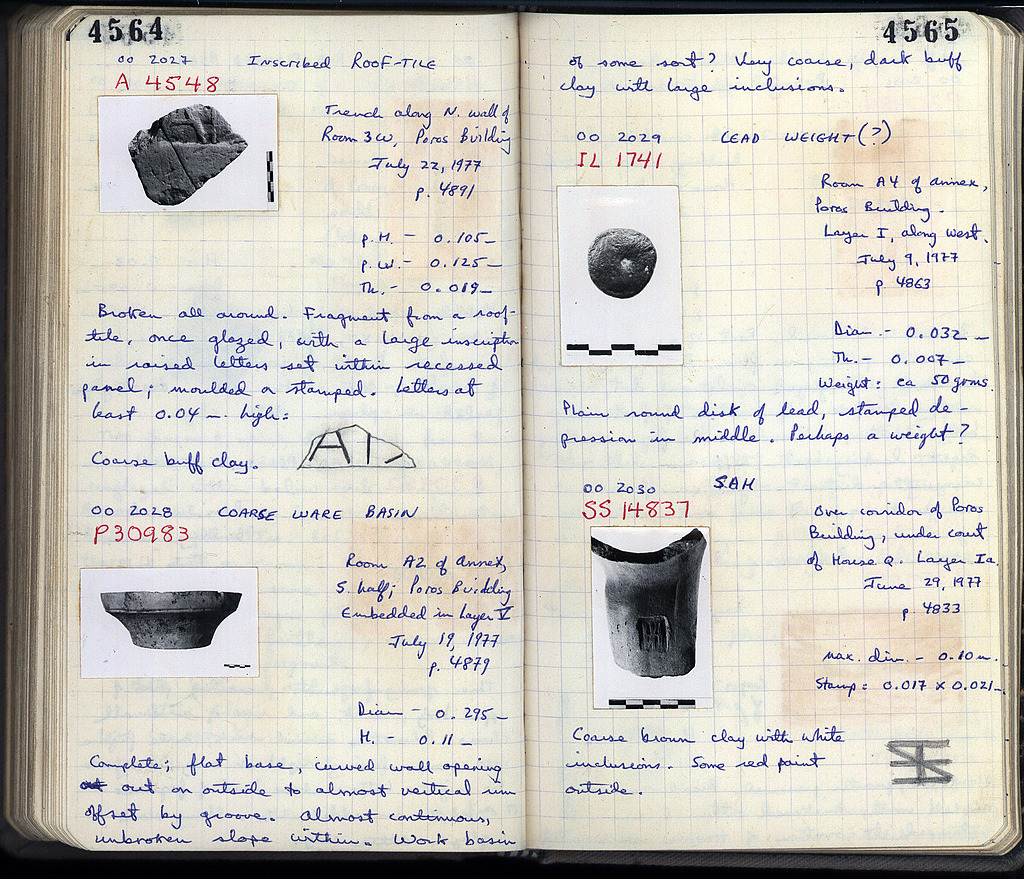 4564
OO 2027 Inscribed Roof-Tile
A 4548
Trench along N. wall of
Room 3W, Poros Building
July 22, 1977
p. 4891
p.H. - 0.105-
p.W.- 0.125-
Th.- 0.019-
Broken all around. Fragment from a roof-
tile, once glazed, with a large inscription
in raised letters set within recessed
panel; moulded or stamped. Letters at
least 0.04 m. high:
Coarse buff clay.
OO 2028 COARSE WARE BASIN
P30983
Room A2 of Annex,
S. half; Poros Building
Embedded in Layer V
July 19, 1977
p. 4879
Diam - 0.295-
H. - 0.11-
Complete; flat base, curved wall opening
out on outside to almost vertical rim
offset by groove. Almost continuous,
unbroken slope within. Work basin
4565
of some sort? Very coarse, dark buff
clay with large inclusions.
OO 2029 LEAD WEIGHT(?)
IL 1741
Room A4 of annex,
Poros Building.
Layer I, along west.
July 9, 1977
p. 4863
Diam.- 0.032-
Th.- 0.007-
Weight: ca 50 grms.
Plain round disk of lead, stamped de-
pression in middle. Perhaps a weight?
OO 2030 SAH
SS 14837
Over corridor of Poros
Building, under court
of House Q. Layer Ia.
June 29, 1977
p 4833
max. dim. - 0.10 m.
Stamp: 0.017 x 0.021-
Coarse brown clay with white
inclusions. Some red paint
outside.